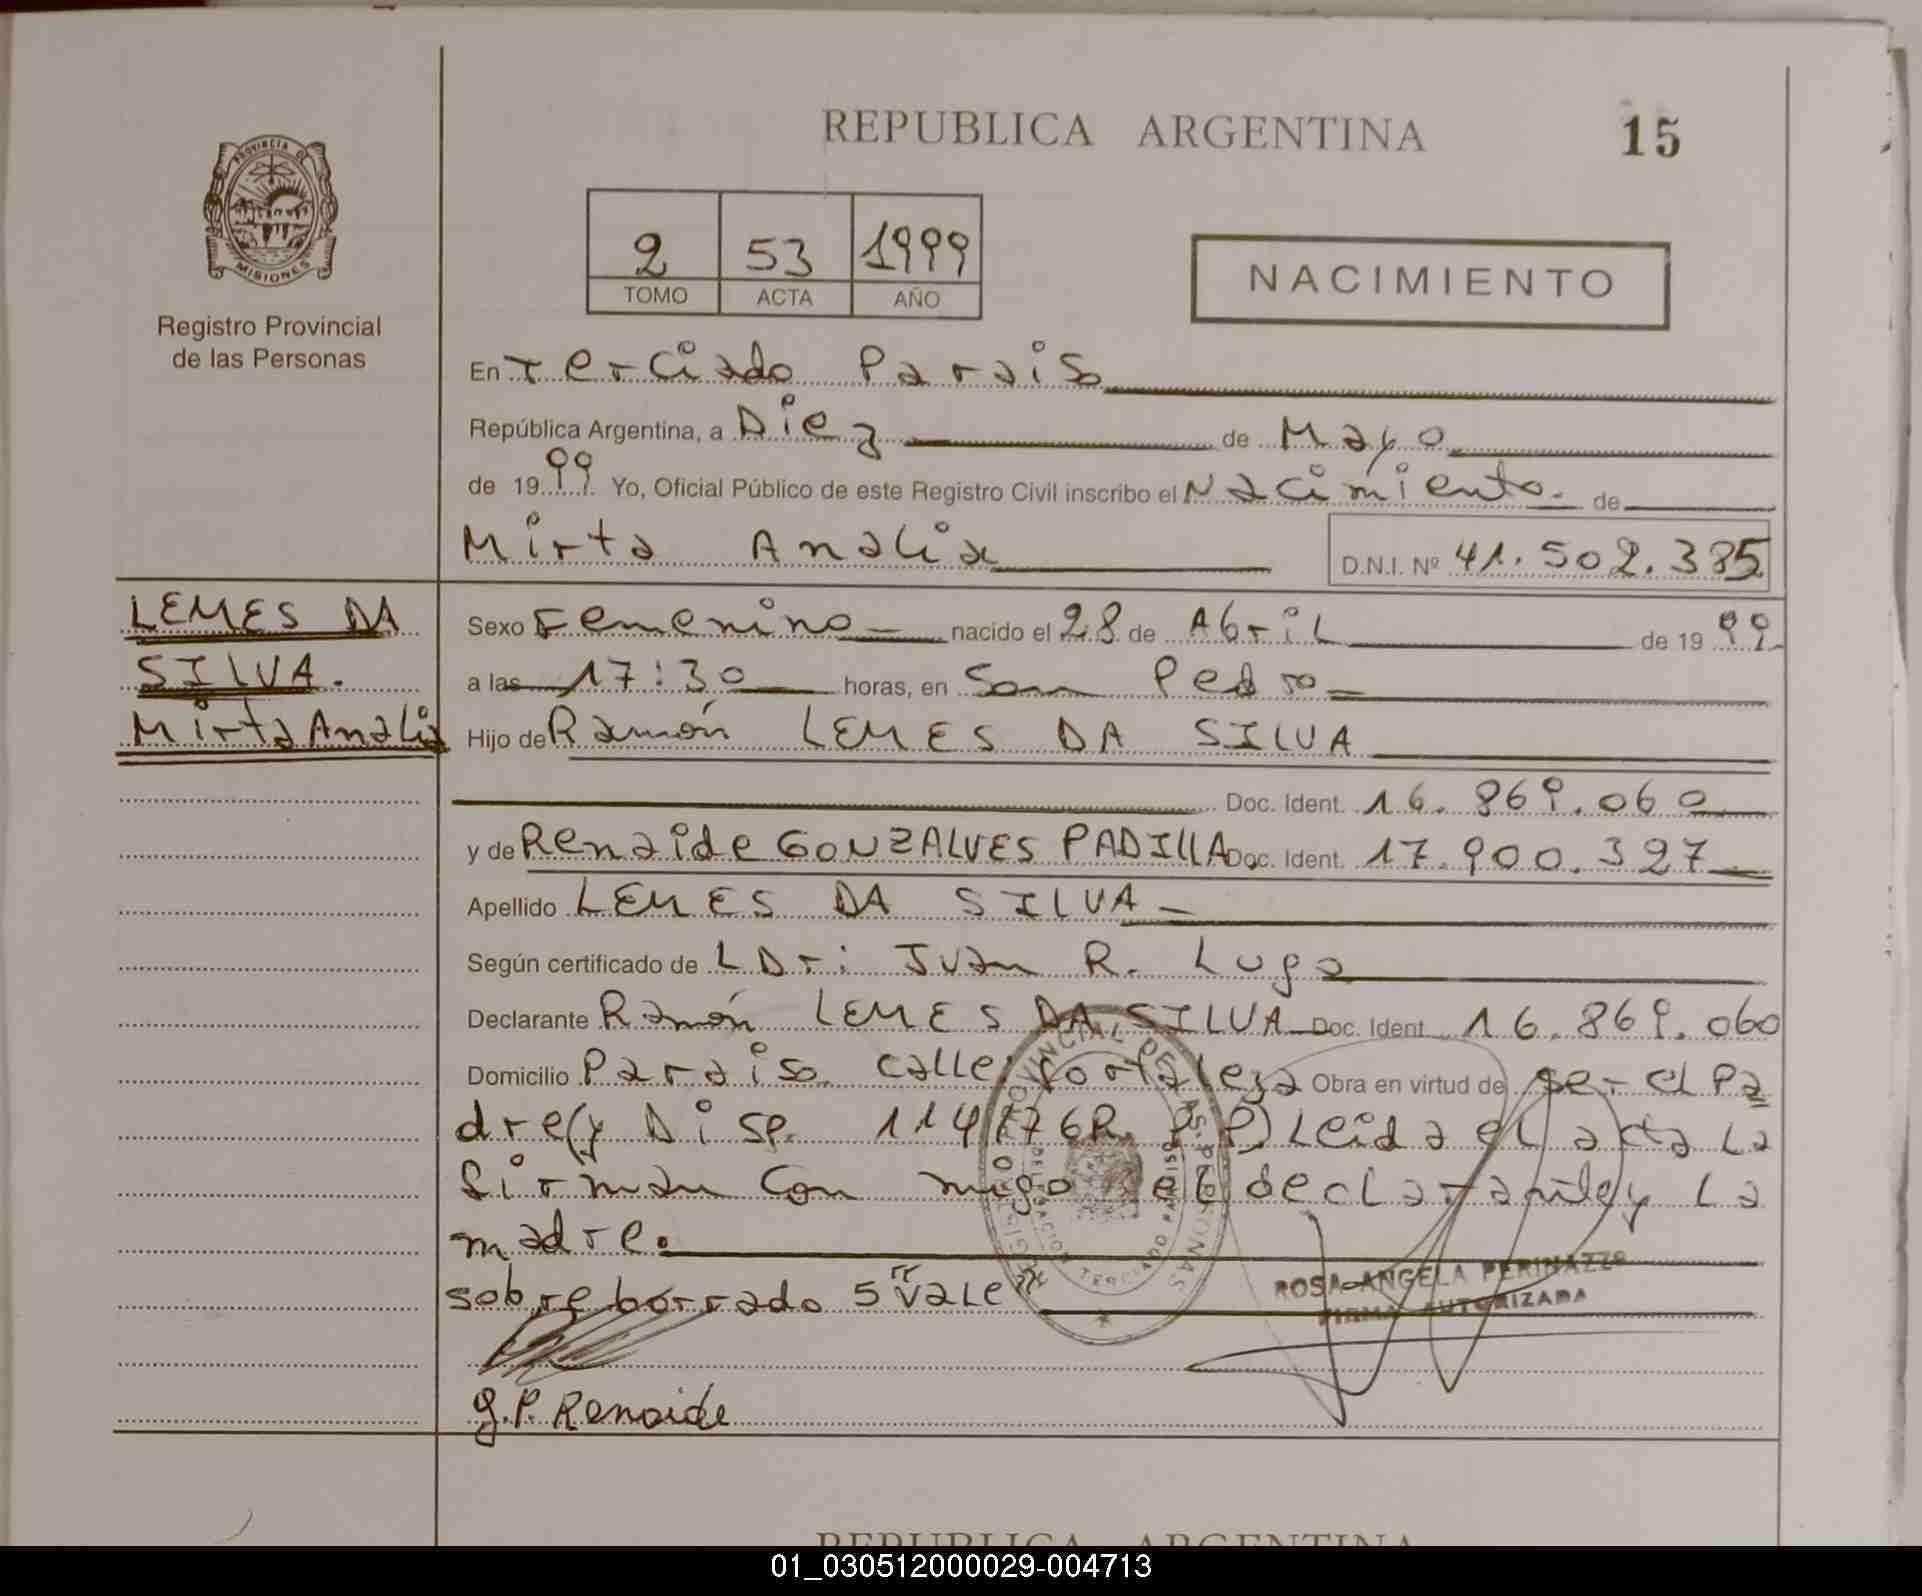 REPUBLICA ARGENTINA
15
PROVINCIA DE
MISIONES
Registro Provincial
de las Personas
2 53 1999
TOMO ACTA AÑO
NACIMIENTO
En Terciado Paraiso
República Argentina, a Diez de Mayo
de 1999 Yo, Oficial Público de este Registro Civil inscribo el Nacimiento. de
Mirta Analia D.N.I. Nº 41.502.385
LEMES DA
SILVA.
Mirta Analia
Sexo Femenino nacido el 28 de Abril de 1999
a las 17:30 horas, en San Pedro
Hijo de Ramón LEMES DA SILVA
Doc. Ident. 16.869.060
y de Renaide GONZALVES PADILLA. Doc. Ident. 17.900.327
Apellido LEMES DA SILVA
Según certificado de L Dr: Juan R. Lugo
Declarante Ramón LEMES DA SILVA Doc. Ident. 16.869.060
Domicilio Paraiso calle: Fortaleza Obra en virtud de ser el Pa
dre(y Disp. 114/76R. P. P) Leida el acta La
firman con migo el declarante y La
madre.
sobre borrado 5 "vale"
ROSA ANGELA PERINAZZO
FIRMA AUTORIZADA
REGISTRO PROVINCIAL DE LAS PERSONAS
DELEGACION TERCIADO PARAISO
g.P. Renaide
REPUBLICA ARGENTINA
01_030512000029-004713